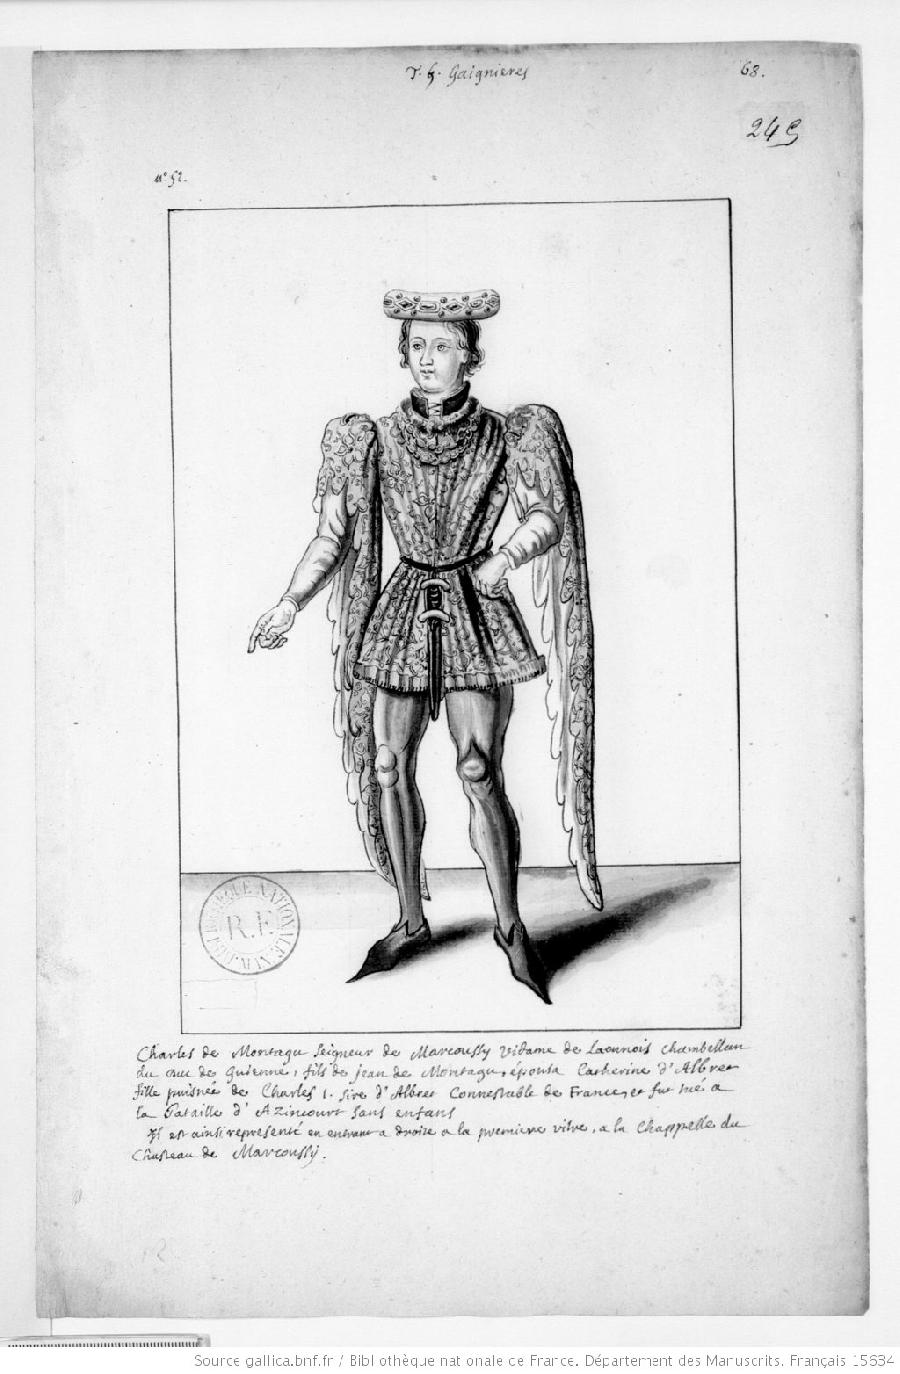 T. h. Gaignieres
68.
249
n.° 52.
BIBLIOTHEQUE NATIONALE
R.F.
Charles de Montagu Seigneur de Marcoussy Vidame de Laonnois Chambellan
du duc de Guienne, fils de Jean de Montagu, épousa Catherine d'Albret
fille puisnée de Charles 1. sire d'Albret Connestable de France, et fut tué a
la Bataille d'Azincourt sans enfans
Il est ainsi representé en entrant a droite a la premiere vitre, a la Chappelle du
Chasteau de Marcoussy.
Source gallica.bnf.fr / Bibliothèque nationale de France. Département des Manuscrits. Français 15634